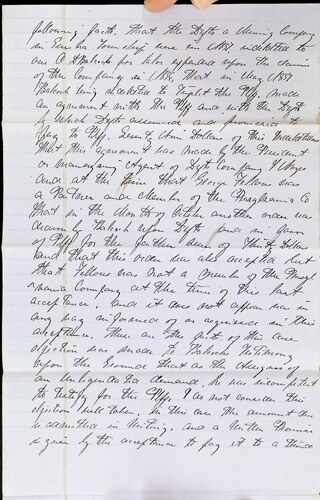 following facts. That the Defts a Mining Company
in Eureka Township were in 1881 indebted to
one A Babcock for labor expended upon the claim
of the Company in 1881, that in May 1881
Babcock being indebted to the Plff. made
an agreement with the Plff and with the Defts
by which Defts assumed and promised to
pay to Plff. Seventy Nine Dollars of this indebtedness
That this agreement was made by the President
or managing Agent of Defts Company
and at the time that George Fellows was
a Partner and Member of the Pennsylvania Co
That in the Month of October another order was
drawn by Babcock upon Defts and in favor
of Plff for the further sum of Thirty Dollars
and that this order was also accepted but
that Fellows was not a member of the
Company at the time of this last
acceptance. And it does not appear was in
any way informed of or acquiesced in this
acceptance. These are the facts of this case
objection was made to Babcocks Testimony
upon the Ground that as the assignor of
an unliquidated demand, he was incompetent
to testify for the Plff. I do not consider this
objection well taken. In this case the amount due
is admitted in writing, and a written Promise
is given by the acceptance to pay it to a third